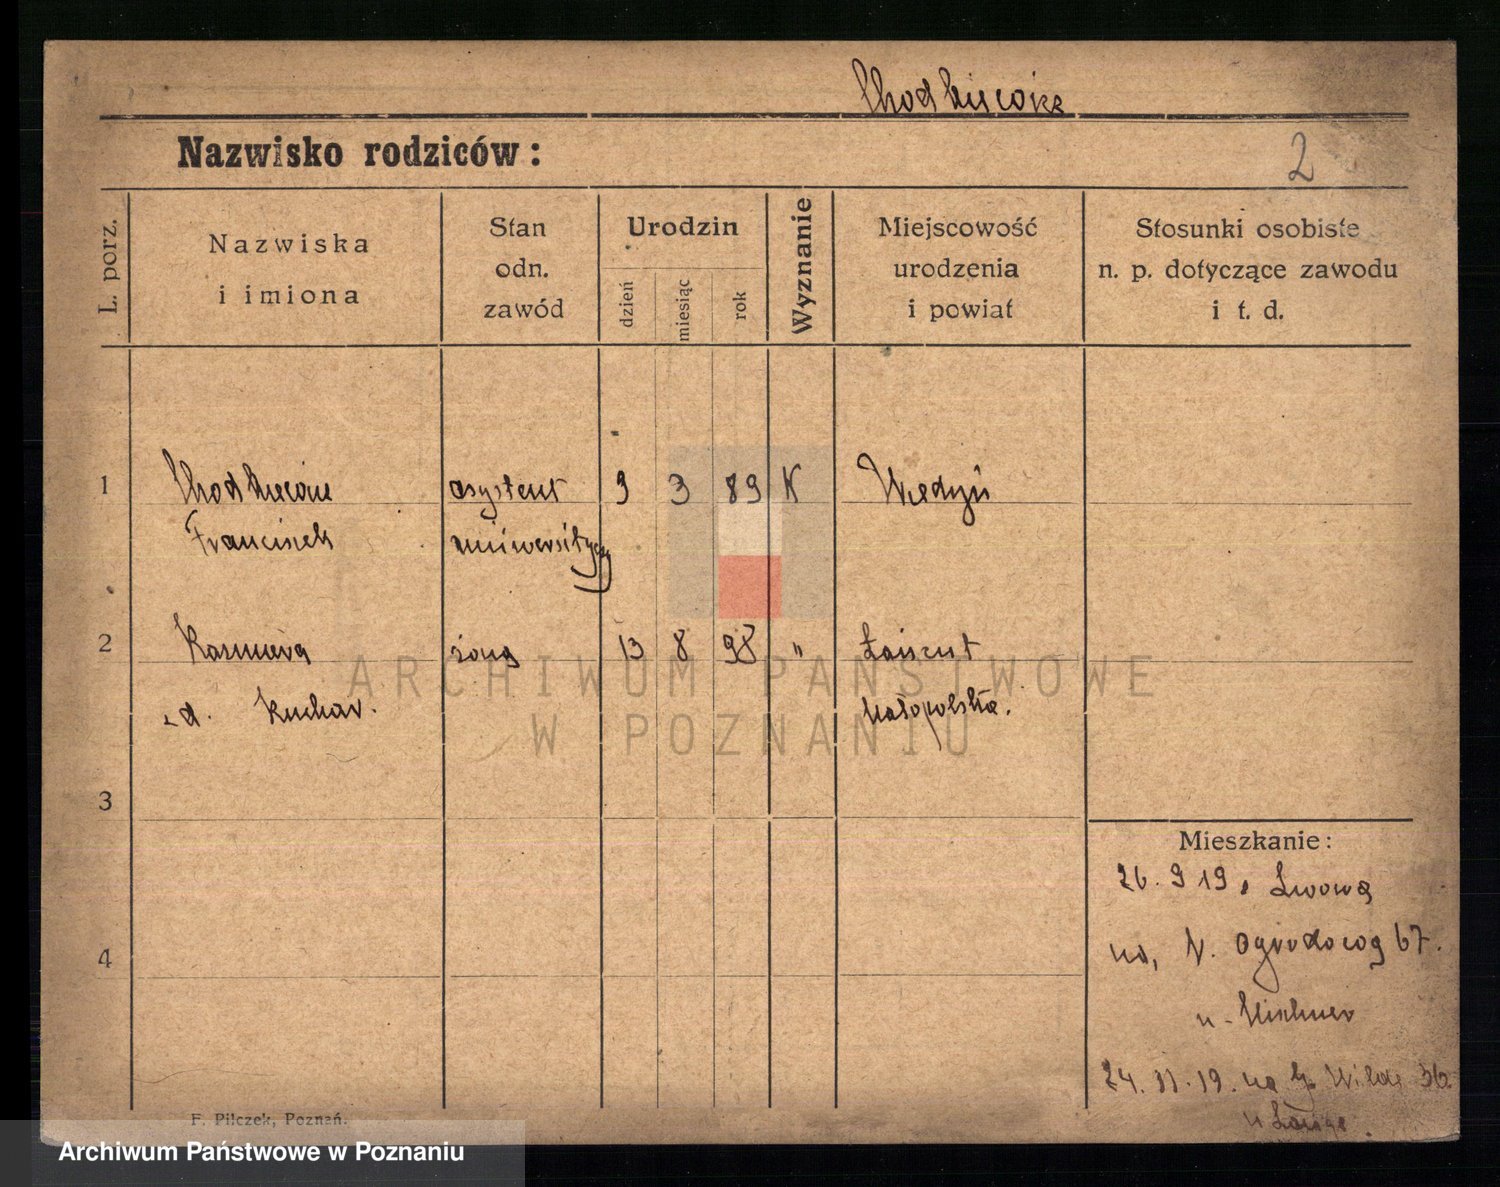 Nazwisko rodziców:
2
L. porz.
Nazwiska
i imiona
Stan
odn.
zawód
Urodzin
dzień
miesiąc
rok
Wyznanie
Miejscowość
urodzenia
i powiat
Stosunki osobiste
n. p. dotyczące zawodu
i t. d.
1
asystent
9
3
89
K
Wiedyń
Franciszek
uniwersytecy
2
Kazimiera
żona
13
8
98
"
Łańcut
Kuchar.
Małopolska.
3
Mieszkanie:
26. 9 19. Lwowa
na, Ogrodową 67.
4
u
24. 11. 19. na Wildę 36
u
F. Pilczek, Poznań.
ARCHIWUM PAŃSTWOWE
W POZNANIU
Archiwum Państwowe w Poznaniu